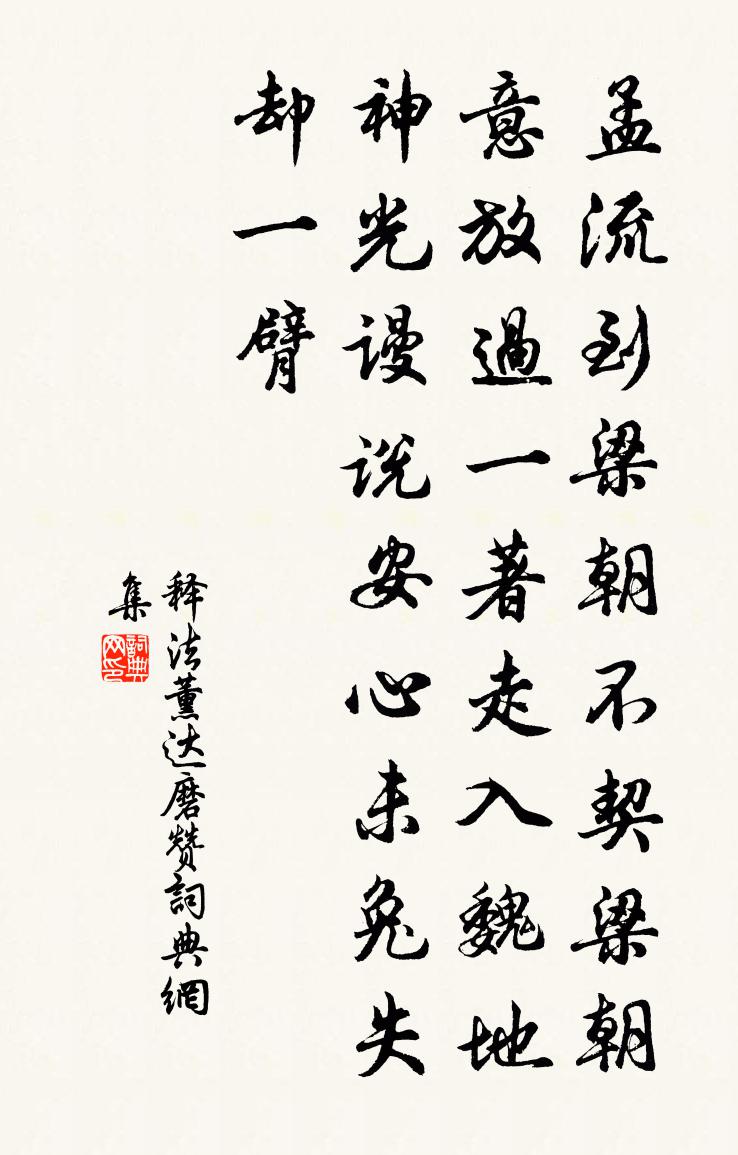 孟流到梁朝不契梁朝
意放過一著走入魏地
神光谩说安心未免失
却一臂
释法薰达磨赞詞典網
集
詞典网印